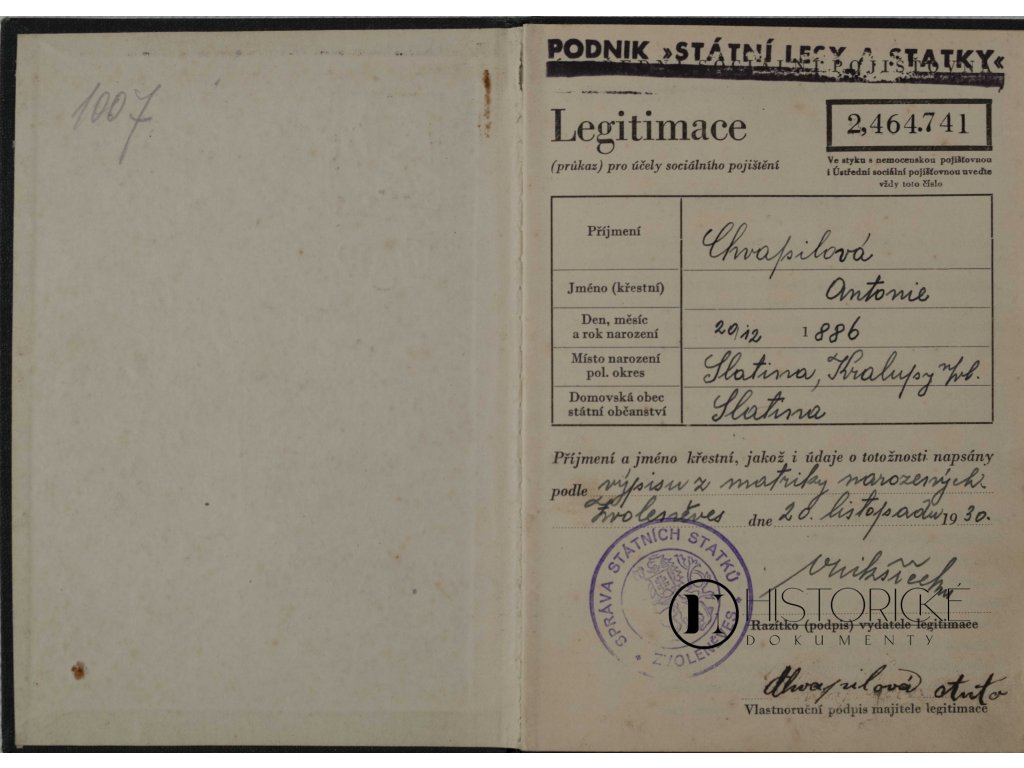 1007
PODNIK »STÁTNÍ LESY A STATKY«
Legitimace
(průkaz) pro účely sociálního pojištění
2,464.741
Ve styku s nemocenskou pojišťovnou
i Ústřední sociální pojišťovnou uveďte
vždy toto číslo
Příjmení Chvapilová
Jméno (křestní) Antonie
Den, měsíc
a rok narození 29 12 1886
Místo narození
pol. okres Slatina, Kralupy n/vl.
Domovská obec
státní občanství Slatina
Příjmení a jméno křestní, jakož i údaje o totožnosti napsány
podle výpisu z matriky narozených
Zvoleněves dne 20. listopadu 1930.
SPRÁVA STÁTNÍCH STATKŮ
* ZVOLENĚVES *
HISTORICKÉ
DOKUMENTY
Razítko (podpis) vydatele legitimace
Chvapilová
Vlastnoruční podpis majitele legitimace